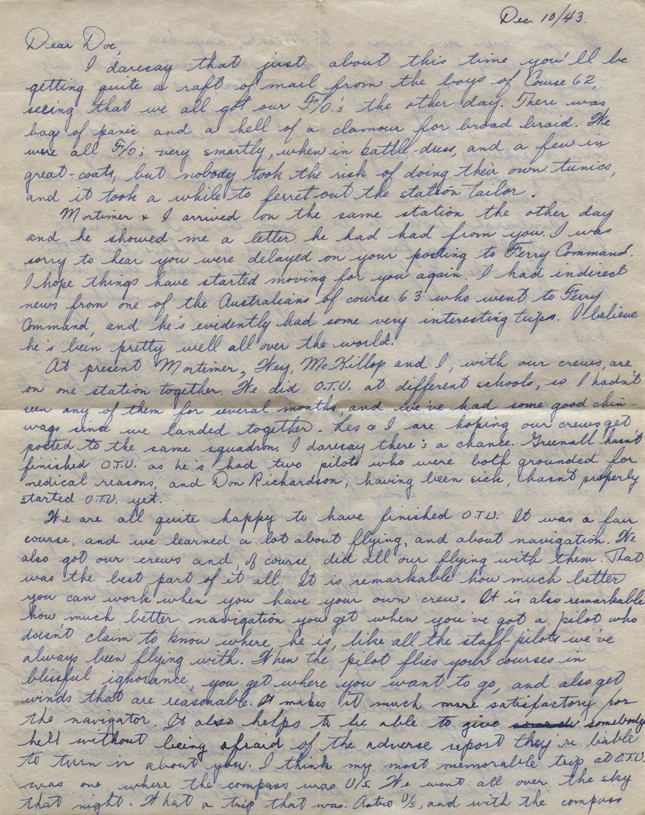 Dec 10/43.
Dear Doc,
I daresay that just about this time you'll be
getting quite a raft of mail from the boys of Couse 62,
seeing that we all got our F/O's the other day. There was
bags of panic and a hell of a clamour for broad braid. We
were all F/O's very smartly, when in battle-dress, and a few in
great-coats, but nobody took the risk of doing their own tunics,
and it took a while to ferret out the station tailor.
Mortimer & I arrived on the same station the other day
and he showed me a letter he had had from you. I was
sorry to hear you were delayed on your posting to Ferry Command.
I hope things have started moving for you again. I had indirect
news from one of the Australians of course 63 who went to Ferry
Command, and he's evidently had some very interesting trips. I believe
he's been pretty well all over the world.
At present Mortimer, Hey, McKillop and I, with our crews, are
on one station together. We did O.T.U. at different schools, so I hadn't
seen any of them for several months, and we've had some good chin-
wags since we landed together. Les & I are hoping our crews get
posted to the same squadron. I daresay there's a chance. Greenall hasn't
finished O.T.U. as he's had two pilots who were both grounded for
medical reasons, and Don Richardson, having been sick, hasn't properly
started O.T.U. yet.
We are all quite happy to have finished O.T.U. It was a fair
course, and we learned a lot about flying, and about navigation. We
also got our crews and, of course, did all our flying with them. That
was the best part of it all. It is remarkable how much better
you can work when you have your own crew. It is also remarkable
how much better navigation you get when you've got a pilot who
doesn't claim to know where he is, like all the staff pilots we've
always been flying with. When the pilot flies your courses in
blissful ignorance, you get where you want to go, and also get
winds that are reasonable. It makes it much more satisfactory for
the navigator. It also helps to be able to give somebody
hell without being afraid of the adverse report they're liable
to turn in about you. I think my most memorable trip at O.T.U.
was one where the compass was U/S. We went all over the sky
that night. What a trip that was. Astro U/S, and with the compass